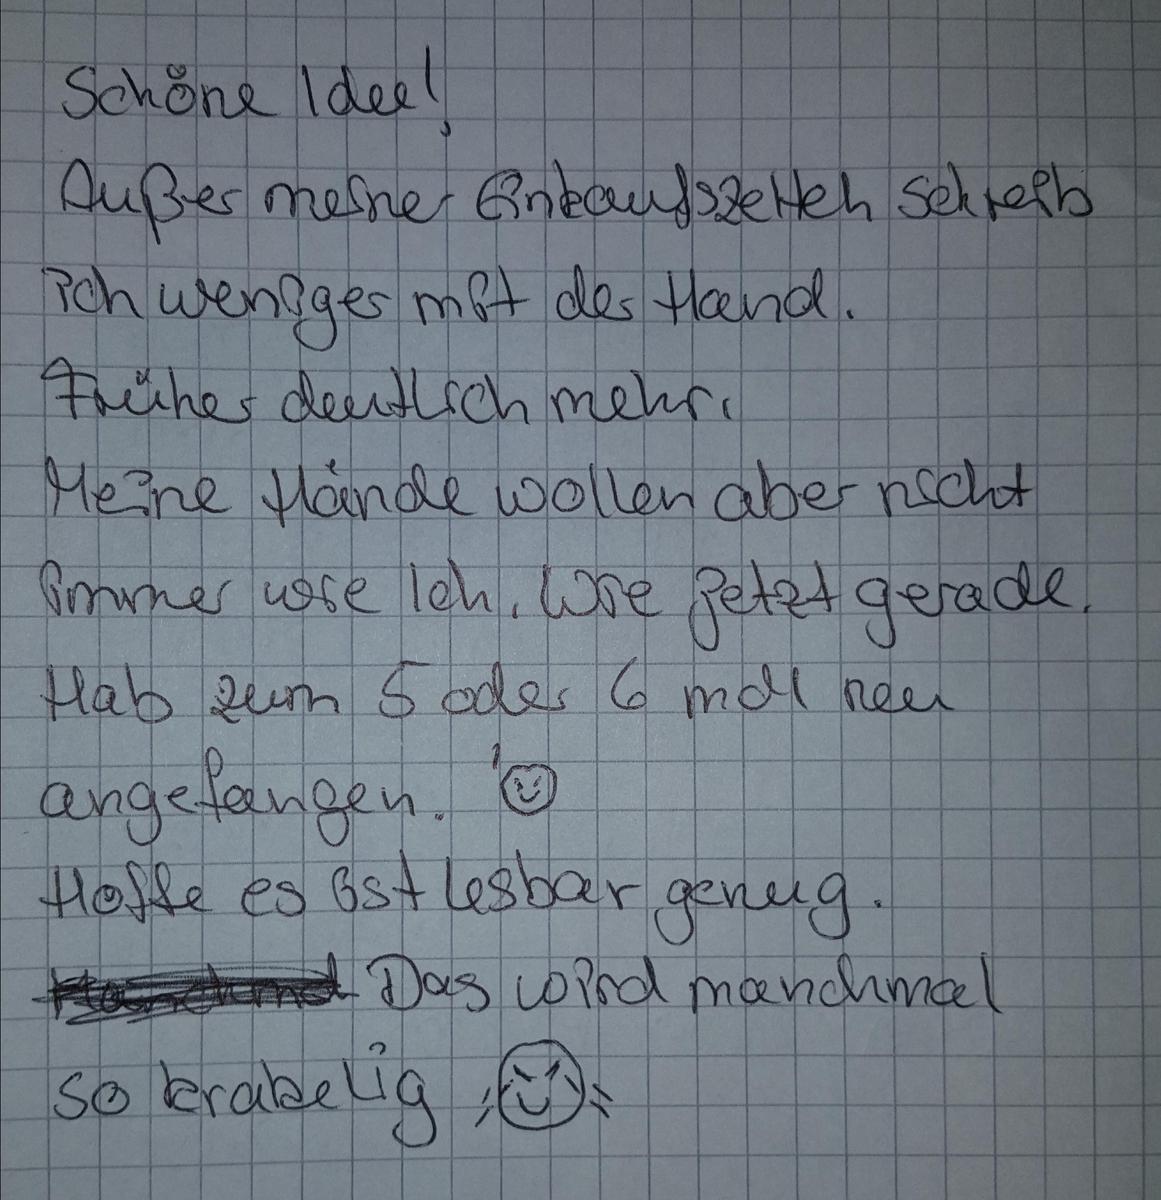 Schöne Idee!
Außer meiner Einkaufszetteln schreib
ich weniger mit der Hand.
Früher deutlich mehr.
Meine Hände wollen aber nicht
immer wie Ich. Wie jetzt gerade.
Hab zum 5 oder 6 mal neu
angefangen.
Hoffe es ist lesbar genug.
Das wird manchmal
so krabelig